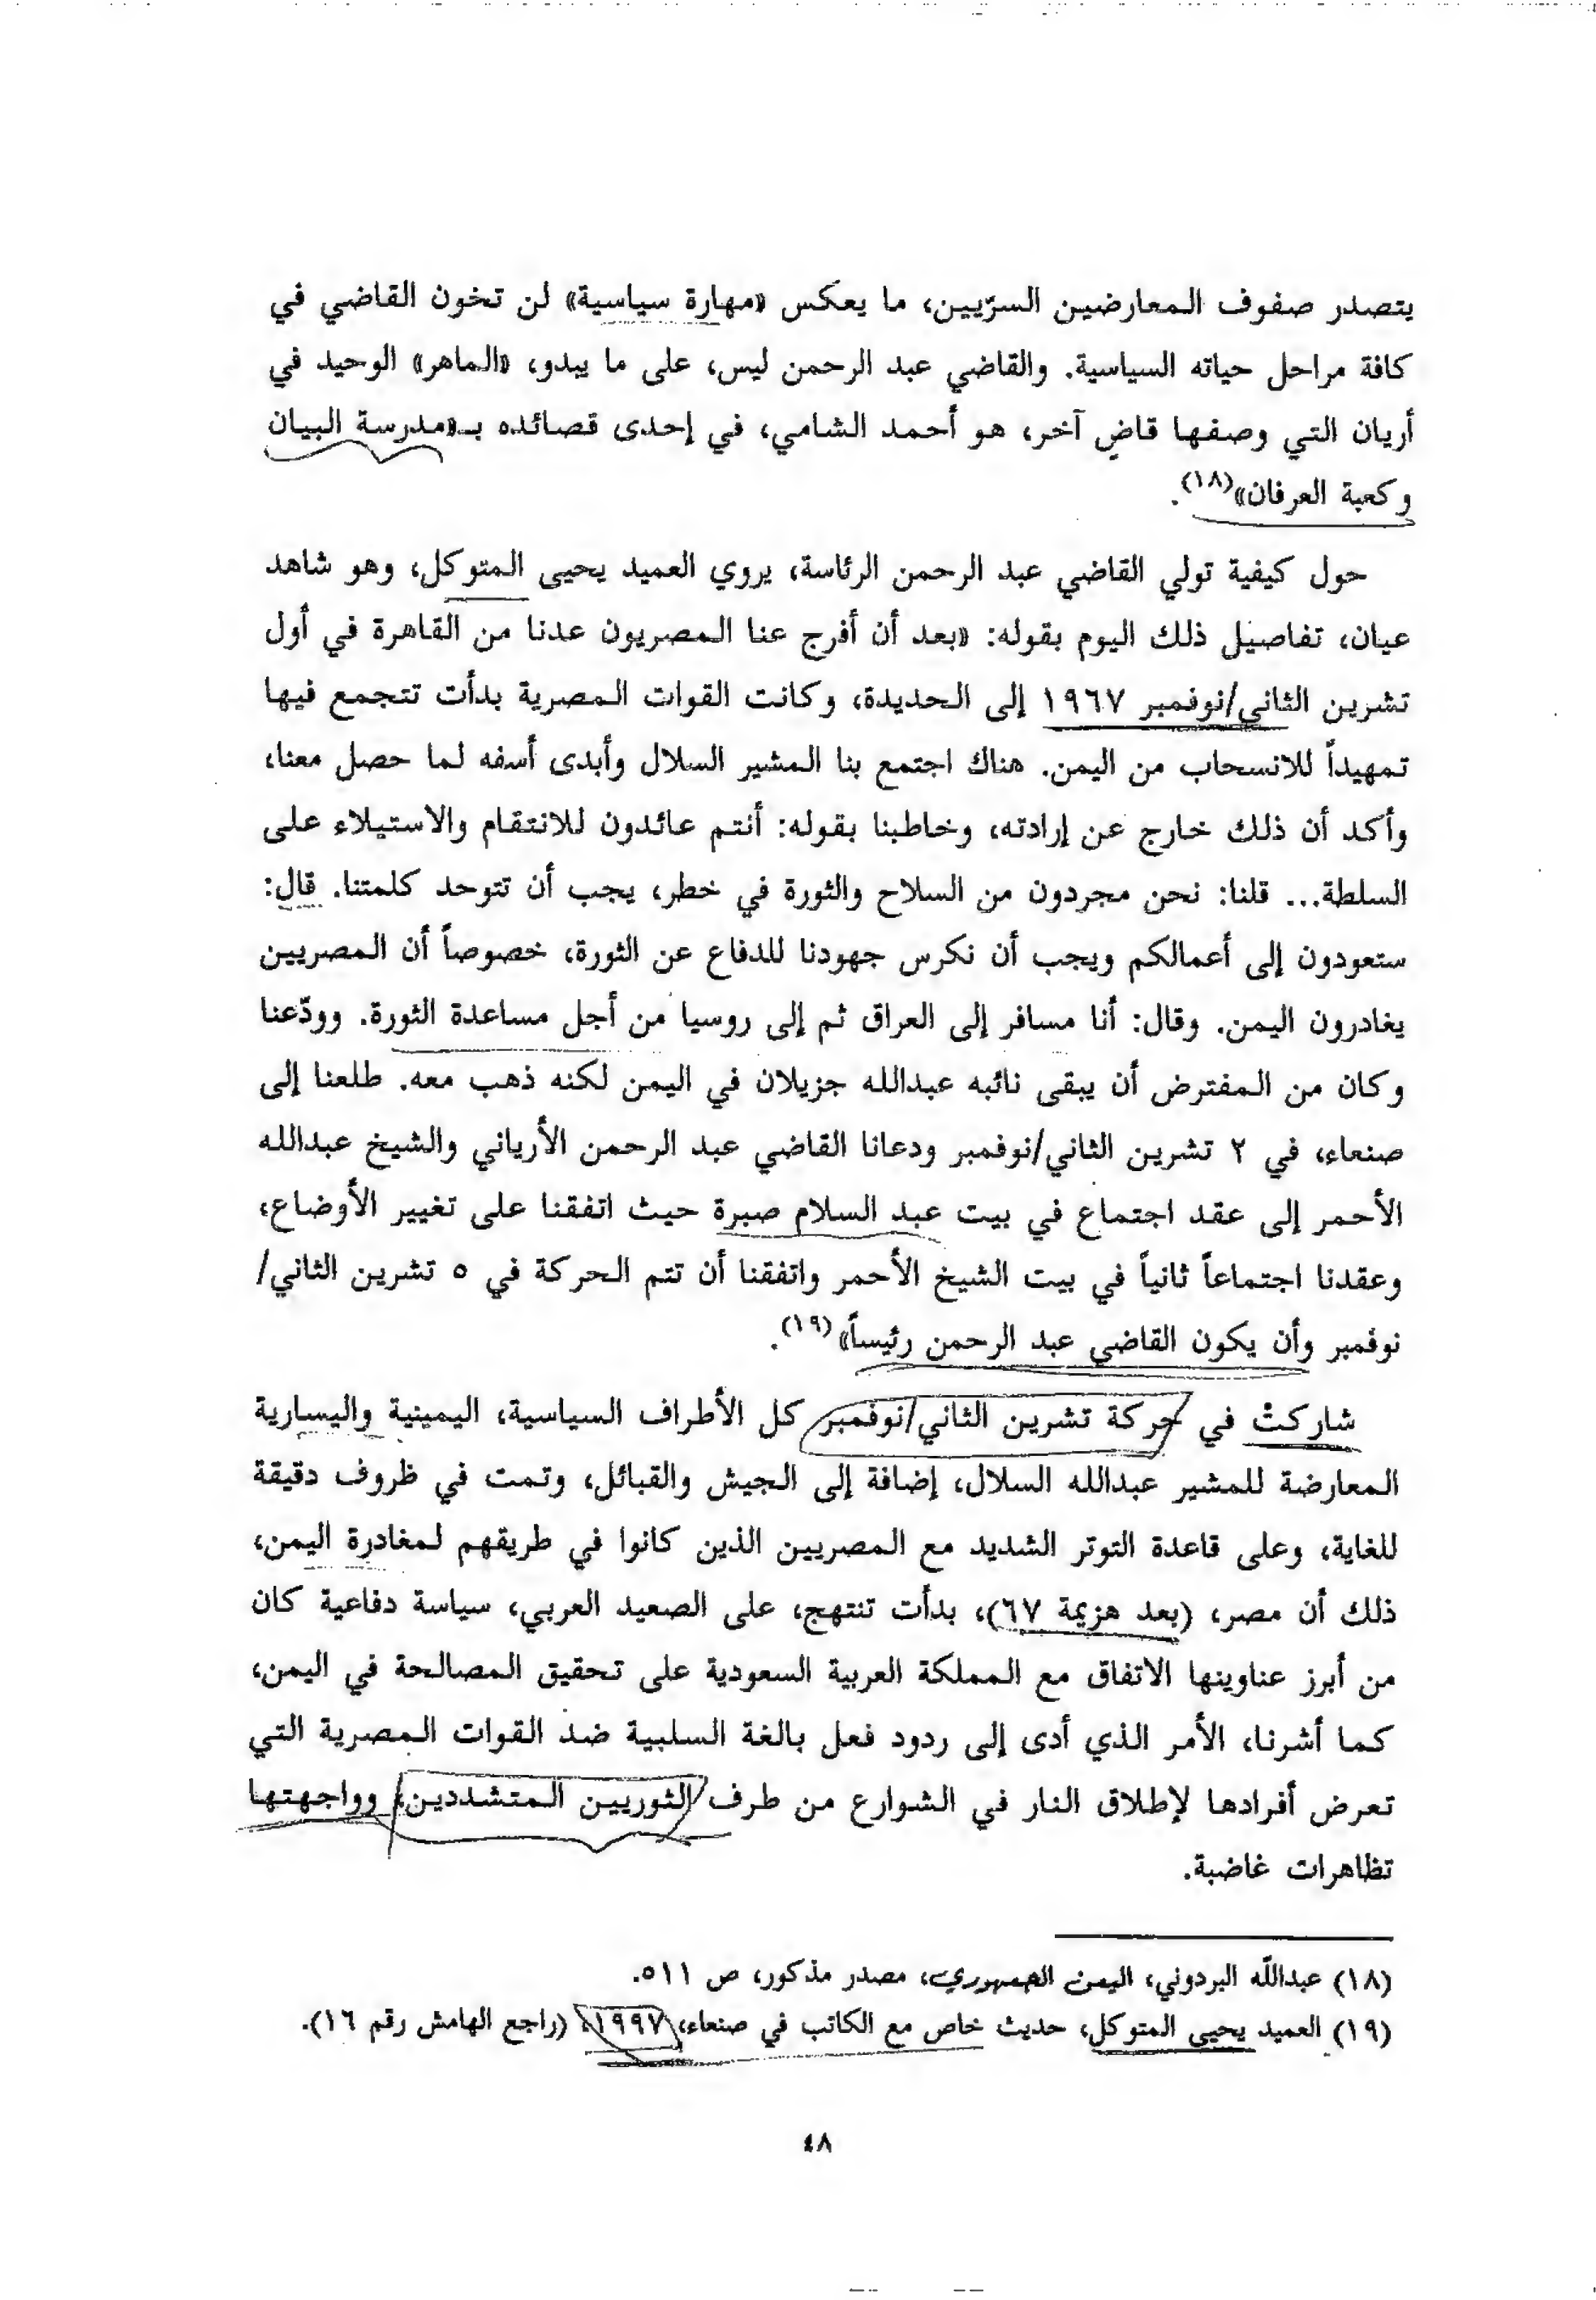 يتصدر صفوف المعارضين السرّيين، ما يعكس «مهارة سياسية» لن تخون القاضي في
كافة مراحل حياته السياسية. والقاضي عبد الرحمن ليس، على ما يبدو، «الماهر» الوحيد في
أريان التي وصفها قاضٍ آخر، هو أحمد الشامي، في إحدى قصائده بـ«مدرسة البيان
وكعبة العرفان»(١٨).
حول كيفية تولي القاضي عبد الرحمن الرئاسة، يروي العميد يحيى المتوكل، وهو شاهد
عيان، تفاصيل ذلك اليوم بقوله: «بعد أن أفرج عنا المصريون عدنا من القاهرة في أول
تشرين الثاني/نوفمبر ١٩٦٧ إلى الحديدة، وكانت القوات المصرية بدأت تتجمع فيها
تمهيداً للانسحاب من اليمن. هناك اجتمع بنا المشير السلال وأبدى أسفه لما حصل معنا،
وأكد أن ذلك خارج عن إرادته، وخاطبنا بقوله: أنتم عائدون للانتقام والاستيلاء على
السلطة... قلنا: نحن مجردون من السلاح والثورة في خطر، يجب أن تتوحد كلمتنا. قال:
ستعودون إلى أعمالكم ويجب أن نكرس جهودنا للدفاع عن الثورة، خصوصاً أن المصريين
يغادرون اليمن. وقال: أنا مسافر إلى العراق ثم إلى روسيا من أجل مساعدة الثورة. وودّعنا
وكان من المفترض أن يبقى نائبه عبدالله جزيلان في اليمن لكنه ذهب معه. طلعنا إلى
صنعاء، في ٢ تشرين الثاني/نوفمبر ودعانا القاضي عبد الرحمن الأرياني والشيخ عبدالله
الأحمر إلى عقد اجتماع في بيت عبد السلام صبرة حيث اتفقنا على تغيير الأوضاع،
وعقدنا اجتماعاً ثانياً في بيت الشيخ الأحمر واتفقنا أن تتم الحركة في ٥ تشرين الثاني/
نوفمبر وأن يكون القاضي عبد الرحمن رئيساً»(١٩).
شاركتْ في حركة تشرين الثاني/نوفمبر كل الأطراف السياسية، اليمينية واليسارية
المعارضة للمشير عبدالله السلال، إضافة إلى الجيش والقبائل، وتمت في ظروف دقيقة
للغاية، وعلى قاعدة التوتر الشديد مع المصريين الذين كانوا في طريقهم لمغادرة اليمن،
ذلك أن مصر، (بعد هزيمة ٦٧)، بدأت تنتهج، على الصعيد العربي، سياسة دفاعية كان
من أبرز عناوينها الاتفاق مع المملكة العربية السعودية على تحقيق المصالحة في اليمن،
كما أشرنا، الأمر الذي أدى إلى ردود فعل بالغة السلبية ضد القوات المصرية التي
تعرض أفرادها لإطلاق النار في الشوارع من طرف الثوريين المتشددين، وواجهتها
تظاهرات غاضبة.
(١٨) عبداللّه البردوني، اليمن الجمهوري، مصدر مذكور، ص ٥١١.
(١٩) العميد يحيى المتوكل، حديث خاص مع الكاتب في صنعاء، ١٩٩٧، (راجع الهامش رقم ١٦).
٤٨